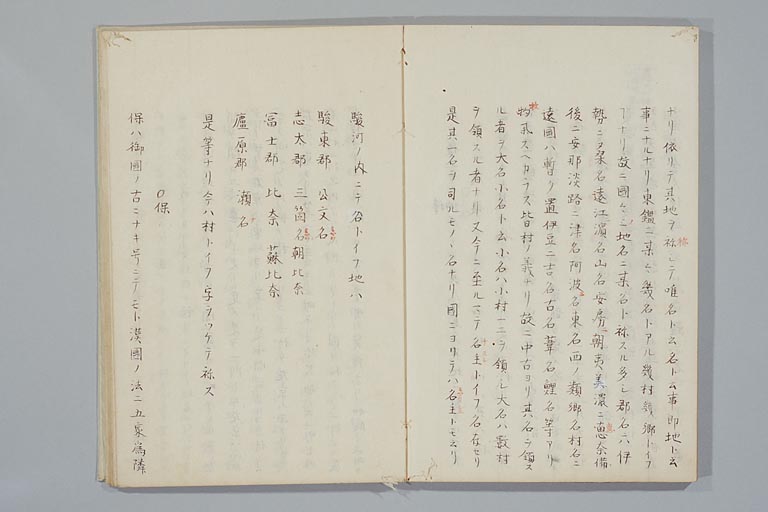 ナリ依リテ其地ヲ称シテ唯名ト云名ト云事即地ト云
事ニナルナリ東鑑ニ某々幾名トアル幾村幾郷トイフ
ナリ故ニ國々ニ地名ニ某名ト称スル多シ郡名ニハ伊
勢ニ桑名遠江濱名山名安房ニ朝夷美濃ニ恵奈備
後ニ安那淡路ニ津名阿波名東名西ノ類郷名村名ニ
遠國ハ暫ク置伊豆ニ吉名古名葦名鯉名等アリ
スヘカラス皆村ノ義ナリ故ニ中古ヨリ其名ヲ領ス
ル者ヲ大名小名ト云小名ハ小村一二ヲ領シ大名ハ数村
ヲ領スル者ナリ又今ニ至ルマテ名主トイフ名存セリ
是其一名ヲ司ルモノヽ名ナリ國ニヨリテハ名主トモ云リ
駿河ノ内ニテ名トイフ地ハ
駿東郡 公文名
志太郡 三箇名 朝比奈
富士郡 比奈 蘇比奈
廬原郡 瀬名
是等ナリ今ハ村トイフ字ヲツケテ称ス
○保
保ハ御國ノ古ニナキ号ニテモト漢國ノ法ニ五家為隣